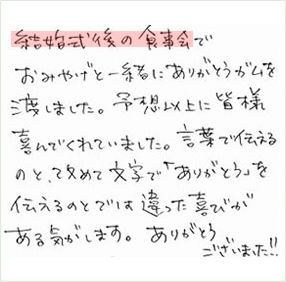 結婚式後の食事会で
おみやげと一緒に「ありがとうガム」を
渡しました。予想以上に皆様
喜んでくれていました。言葉で伝える
のと、改めて文字で「ありがとう」を
伝えるのとでは違った喜びが
ある気がします。ありがとう
ございました!!